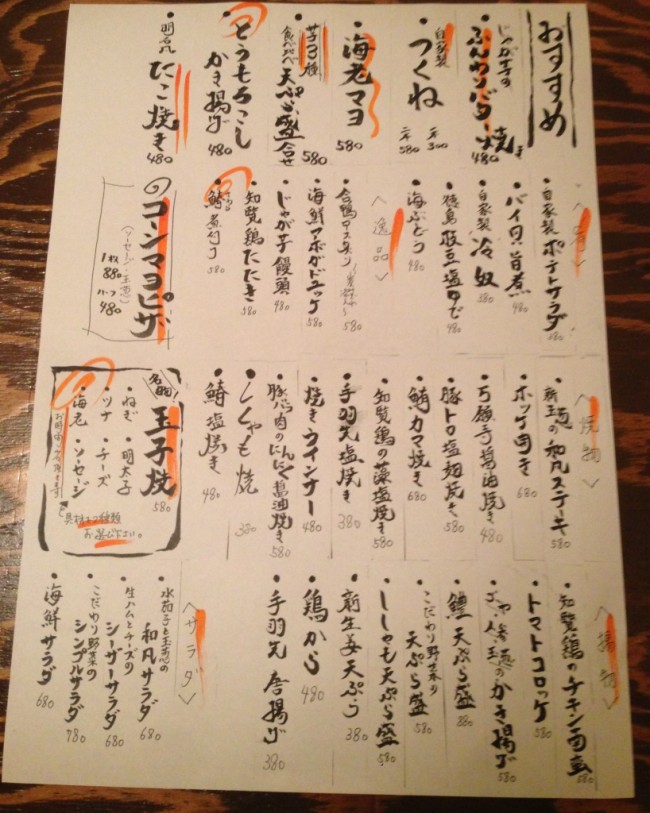 おすすめ
じゃが芋の
ふんわりバター焼き
480
自家製
つくね
一本 300
二本 580
海老マヨ
580
芋3種
食べ比べ 天ぷら盛合せ
580
とうもろこし
かき揚げ
480
明石風 たこ焼き
480
自家製 ポテトサラダ
バイ貝旨煮
480
自家製 冷奴
380
枝豆塩ゆで
480
海ぶどう
480
〈逸品〉
合鴨ロース
580
海鮮アボガドユッケ
580
じゃが芋饅頭
480
知覧鶏たたき
580
煮付け
580
コーンマヨピザ
(ソーセージ・玉ねぎ)
1枚 880
ハーフ 480
〈焼物〉
新玉ねぎの和風ステーキ
580
ホッケ開き
680
万願寺醤油焼き
480
豚トロ塩麹焼き
580
鮪カマ焼き
680
知覧鶏の藻塩焼き
580
手羽先塩焼き
380
焼きウインナー
480
豚バラ肉のにんにく醤油焼き
580
ししゃも焼
380
鰆塩焼き
480
名物
玉子焼
580
・ねぎ ・明太子
・ツナ ・チーズ
・海老 ・ソーセージ
具材は2種類
お選び下さい。
お時間かかります
〈揚物〉
知覧鶏のチキン南蛮
580
トマトコロッケ
580
かき揚げ
580
鱧天ぷら盛
380
こだわり野菜の
天ぷら盛
580
ししゃも天ぷら盛
580
新生姜天ぷら
380
鶏から
480
手羽先唐揚げ
380
〈サラダ〉
水茄子と玉ねぎの
和風サラダ
680
生ハムとチーズの
シーザーサラダ
680
こだわり野菜の
シンプルサラダ
780
海鮮サラダ
680